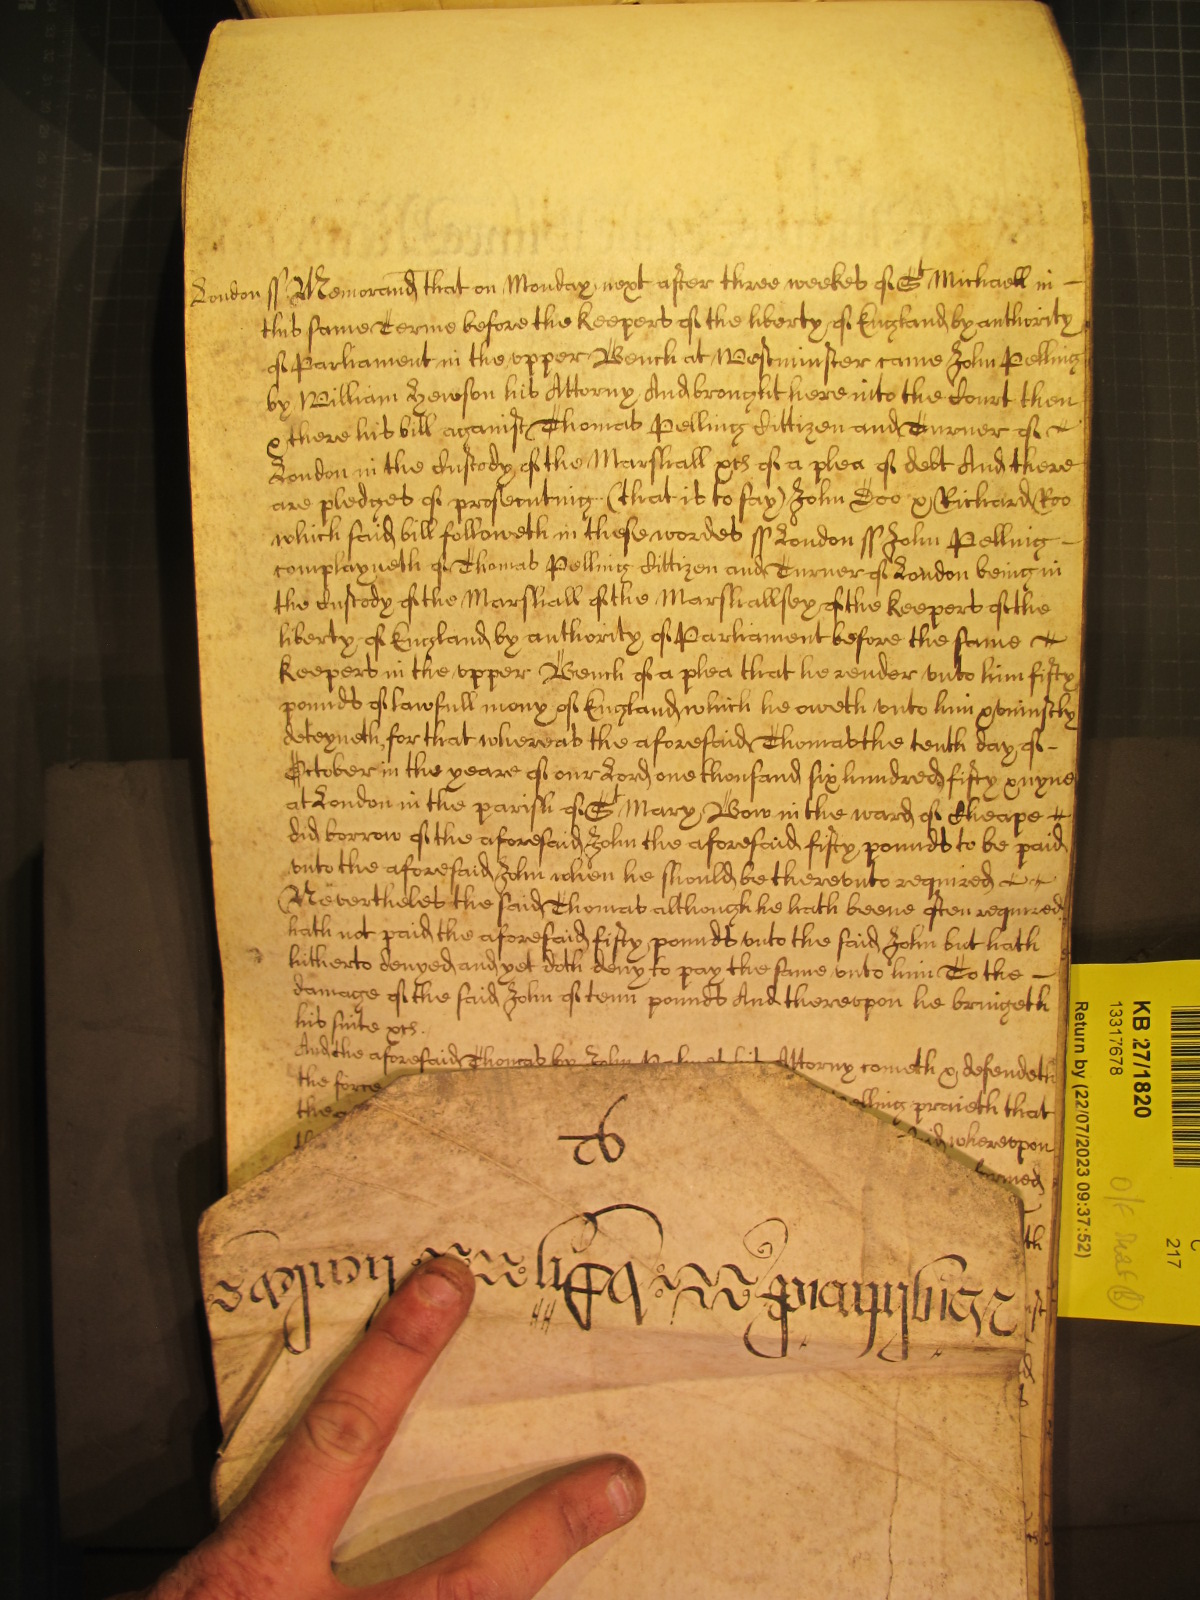 London ss Memorand that on Monday next after three weekes of St Michaell in
this same Terme before the Keepers of the liberty of England by authority
of Parliament in the upper Bench at Westminster came John Pelling
by William Hewson his Attorny And brought here into the Court then
& there his bill against Thomas Pelling Cittizen and Turner of
London in the Custody of the Marshall &c of a plea of debt And there
are pledges of prosecuting (that is to say) John Doo & Richard Roo
which said bill followeth in these wordes ss London ss John Pelling
complayneth of Thomas Pelling Cittizen and Turner of London being in
the Custody of the Marshall of the Marshallsey of the Keepers of the
liberty of England by authority of Parliament before the same
Keepers in the upper Bench of a plea that he render unto him fifty
pounds of lawfull mony of England which he oweth unto him & uniustly
deteyneth, for that whereas the aforesaid Thomas the tenth day of
October in the yeare of our Lord one thousand six hundred fifty & nyne
at London in the parish of St Mary Bow in the ward of Cheape
did borrow of the aforesaid John the aforesaid fifty pounds to be paid
unto the aforesaid John when he should be thereunto required
Nevertheles the said Thomas although he hath beene often required
hath not paid the aforesaid fifty pounds unto the said John but hath
hitherto denyed and yet doth deny to pay the same unto him To the
damage of the said John of tenn pounds And thereupon he bringeth
his suite &c.
And the aforesaid Thomas by John his Attorny cometh & defendeth
the force
elling praieth that
the
whereupon
92
KB 27/1820
13317678
Return by (22/07/2023 09:37:52)
217